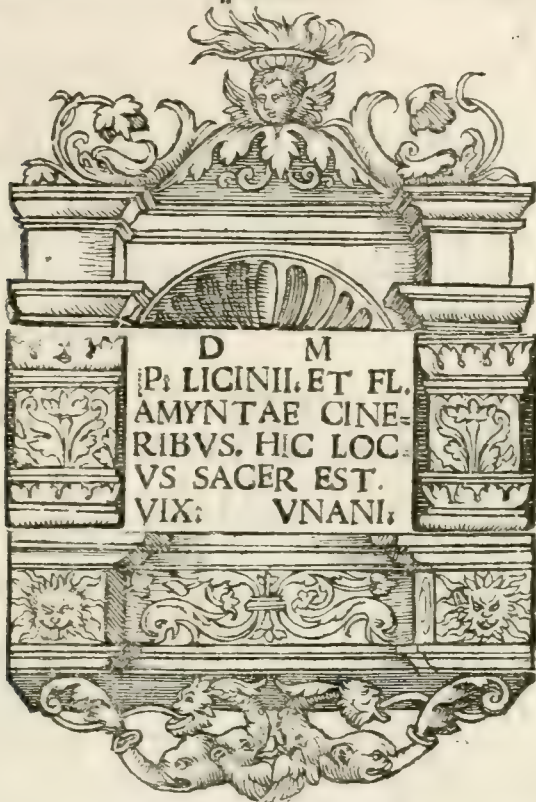 D M
P: LICINII: ET FL.
AMYNTAE CINE-
RIBVS. HIC LOC-
VS SACER EST.
VIX: VNANI: